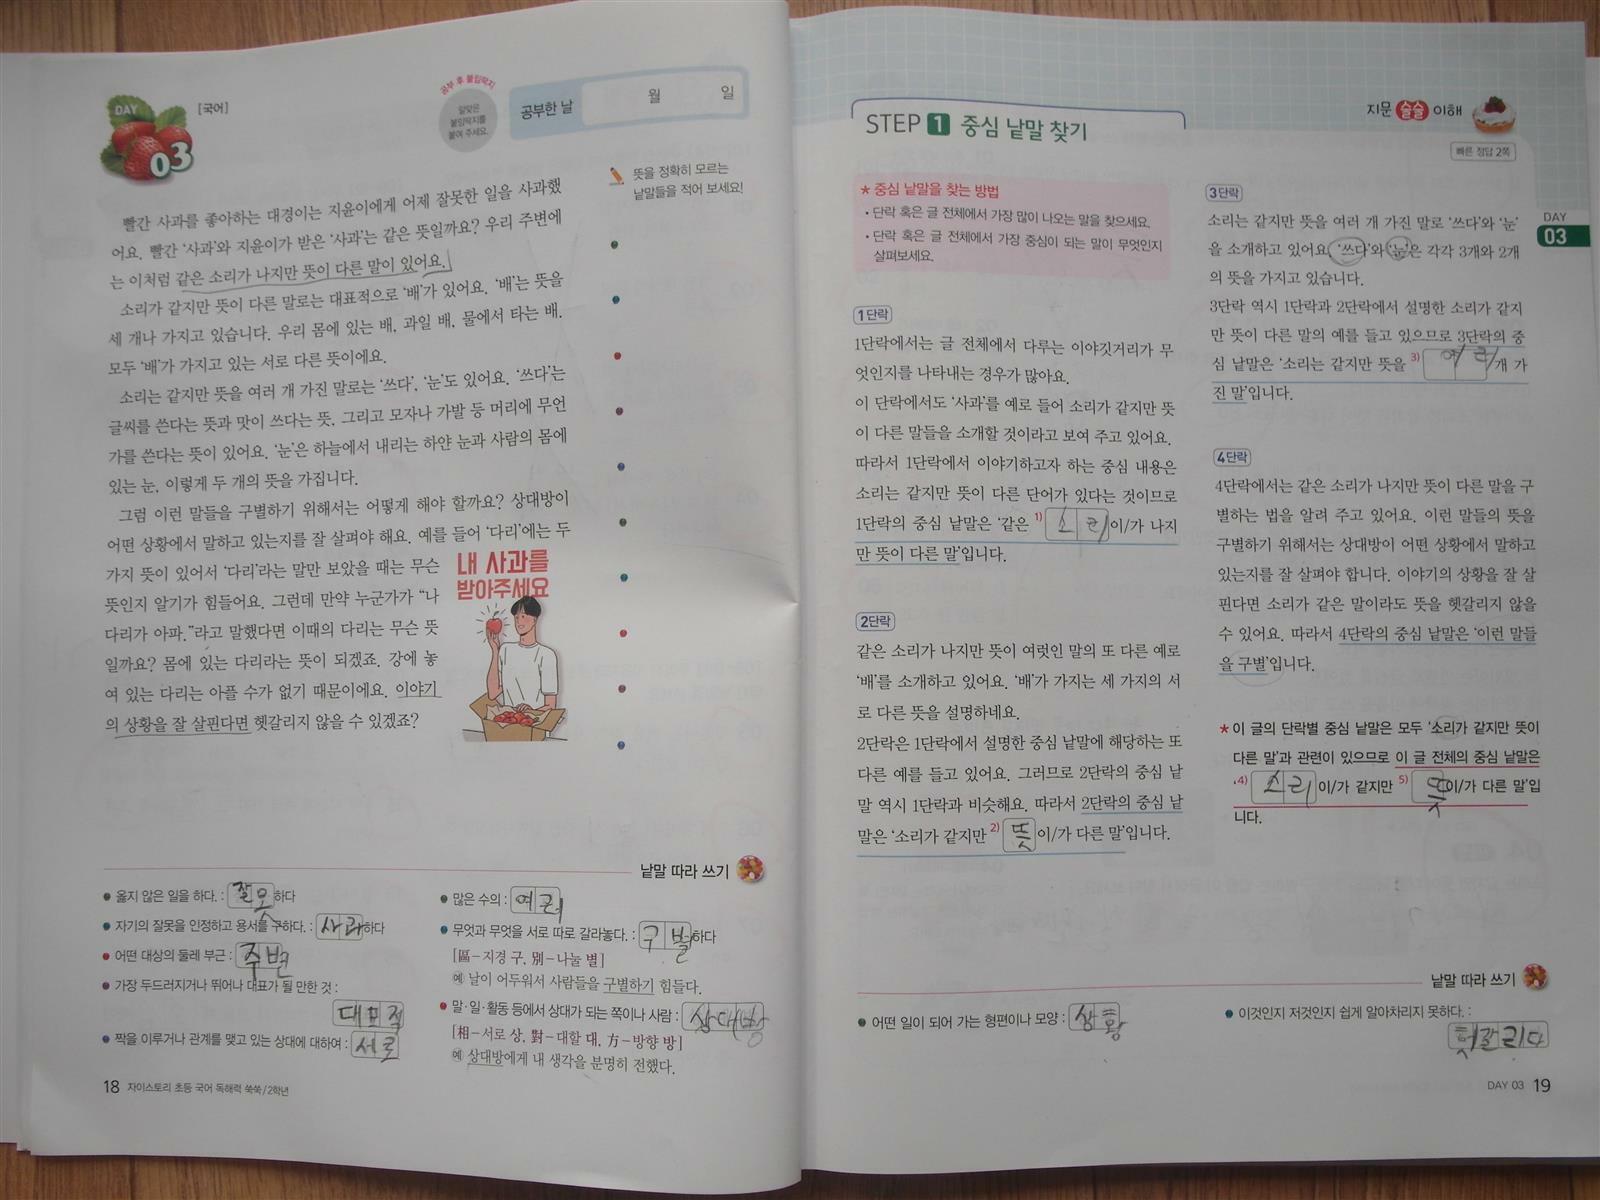 DAY
03
[국어]
공부 후 붙임딱지
알맞은
붙임딱지를
붙여 주세요.
공부한 날 월 일
뜻을 정확히 모르는
낱말들을 적어 보세요!
빨간 사과를 좋아하는 대경이는 지윤이에게 어제 잘못한 일을 사과했
어요. 빨간 ‘사과’와 지윤이가 받은 ‘사과’는 같은 뜻일까요? 우리 주변에
는 이처럼 같은 소리가 나지만 뜻이 다른 말이 있어요.
소리가 같지만 뜻이 다른 말로는 대표적으로 ‘배’가 있어요. ‘배’는 뜻을
세 개나 가지고 있습니다. 우리 몸에 있는 배, 과일 배, 물에서 타는 배.
모두 ‘배’가 가지고 있는 서로 다른 뜻이에요.
소리는 같지만 뜻을 여러 개 가진 말로는 ‘쓰다’, ‘눈’도 있어요. ‘쓰다’는
글씨를 쓴다는 뜻과 맛이 쓰다는 뜻, 그리고 모자나 가발 등 머리에 무언
가를 쓴다는 뜻이 있어요. ‘눈’은 하늘에서 내리는 하얀 눈과 사람의 몸에
있는 눈, 이렇게 두 개의 뜻을 가집니다.
그럼 이런 말들을 구별하기 위해서는 어떻게 해야 할까요? 상대방이
어떤 상황에서 말하고 있는지를 잘 살펴야 해요. 예를 들어 ‘다리’에는 두
가지 뜻이 있어서 ‘다리’라는 말만 보았을 때는 무슨
뜻인지 알기가 힘들어요. 그런데 만약 누군가가 “나
다리가 아파.”라고 말했다면 이때의 다리는 무슨 뜻
일까요? 몸에 있는 다리라는 뜻이 되겠죠. 강에 놓
여 있는 다리는 아플 수가 없기 때문이에요. 이야기
의 상황을 잘 살핀다면 헷갈리지 않을 수 있겠죠?
내 사과를
받아주세요
낱말 따라 쓰기
• 옳지 않은 일을 하다. : 잘못하다
• 자기의 잘못을 인정하고 용서를 구하다. : 사과하다
• 어떤 대상의 둘레 부근 : 주변
• 가장 두드러지거나 뛰어나 대표가 될 만한 것 :
대표적
• 짝을 이루거나 관계를 맺고 있는 상대에 대하여 : 서로
• 많은 수의 : 여러
• 무엇과 무엇을 서로 따로 갈라놓다. : 구별하다
[區-지경 구, 別-나눌 별]
예 날이 어두워서 사람들을 구별하기 힘들다.
• 말·일·활동 등에서 상대가 되는 쪽이나 사람 : 상대방
[相-서로 상, 對-대할 대, 方-방향 방]
예 상대방에게 내 생각을 분명히 전했다.
18 자이스토리 초등 국어 독해력 쑥쑥/2학년
STEP 1 중심 낱말 찾기
지문 술술 이해
빠른 정답 2쪽
DAY
03
★ 중심 낱말을 찾는 방법
• 단락 혹은 글 전체에서 가장 많이 나오는 말을 찾으세요.
• 단락 혹은 글 전체에서 가장 중심이 되는 말이 무엇인지
살펴보세요.
1단락
1단락에서는 글 전체에서 다루는 이야깃거리가 무
엇인지를 나타내는 경우가 많아요.
이 단락에서도 ‘사과’를 예로 들어 소리가 같지만 뜻
이 다른 말들을 소개할 것이라고 보여 주고 있어요.
따라서 1단락에서 이야기하고자 하는 중심 내용은
소리는 같지만 뜻이 다른 단어가 있다는 것이므로
1단락의 중심 낱말은 ‘같은 1) 소리이/가 나지
만 뜻이 다른 말’입니다.
2단락
같은 소리가 나지만 뜻이 여럿인 말의 또 다른 예로
‘배’를 소개하고 있어요. ‘배’가 가지는 세 가지의 서
로 다른 뜻을 설명하네요.
2단락은 1단락에서 설명한 중심 낱말에 해당하는 또
다른 예를 들고 있어요. 그러므로 2단락의 중심 낱
말 역시 1단락과 비슷해요. 따라서 2단락의 중심 낱
말은 ‘소리가 같지만 2) 뜻이/가 다른 말’입니다.
3단락
소리는 같지만 뜻을 여러 개 가진 말로 ‘쓰다’와 ‘눈’
을 소개하고 있어요. ‘쓰다’와 ‘눈’은 각각 3개와 2개
의 뜻을 가지고 있습니다.
3단락 역시 1단락과 2단락에서 설명한 소리가 같지
만 뜻이 다른 말의 예를 들고 있으므로 3단락의 중
심 낱말은 ‘소리는 같지만 뜻을 3) 여러 개 가
진 말’입니다.
4단락
4단락에서는 같은 소리가 나지만 뜻이 다른 말을 구
별하는 법을 알려 주고 있어요. 이런 말들의 뜻을
구별하기 위해서는 상대방이 어떤 상황에서 말하고
있는지를 잘 살펴야 합니다. 이야기의 상황을 잘 살
핀다면 소리가 같은 말이라도 뜻을 헷갈리지 않을
수 있어요. 따라서 4단락의 중심 낱말은 ‘이런 말들
을 구별’입니다.
★ 이 글의 단락별 중심 낱말은 모두 ‘소리가 같지만 뜻이
다른 말’과 관련이 있으므로 이 글 전체의 중심 낱말은
‘4) 소리이/가 같지만 5) 뜻이/가 다른 말’입
니다.
낱말 따라 쓰기
• 어떤 일이 되어 가는 형편이나 모양 : 상황
• 이것인지 저것인지 쉽게 알아차리지 못하다. :
헷갈리다
DAY 03 19